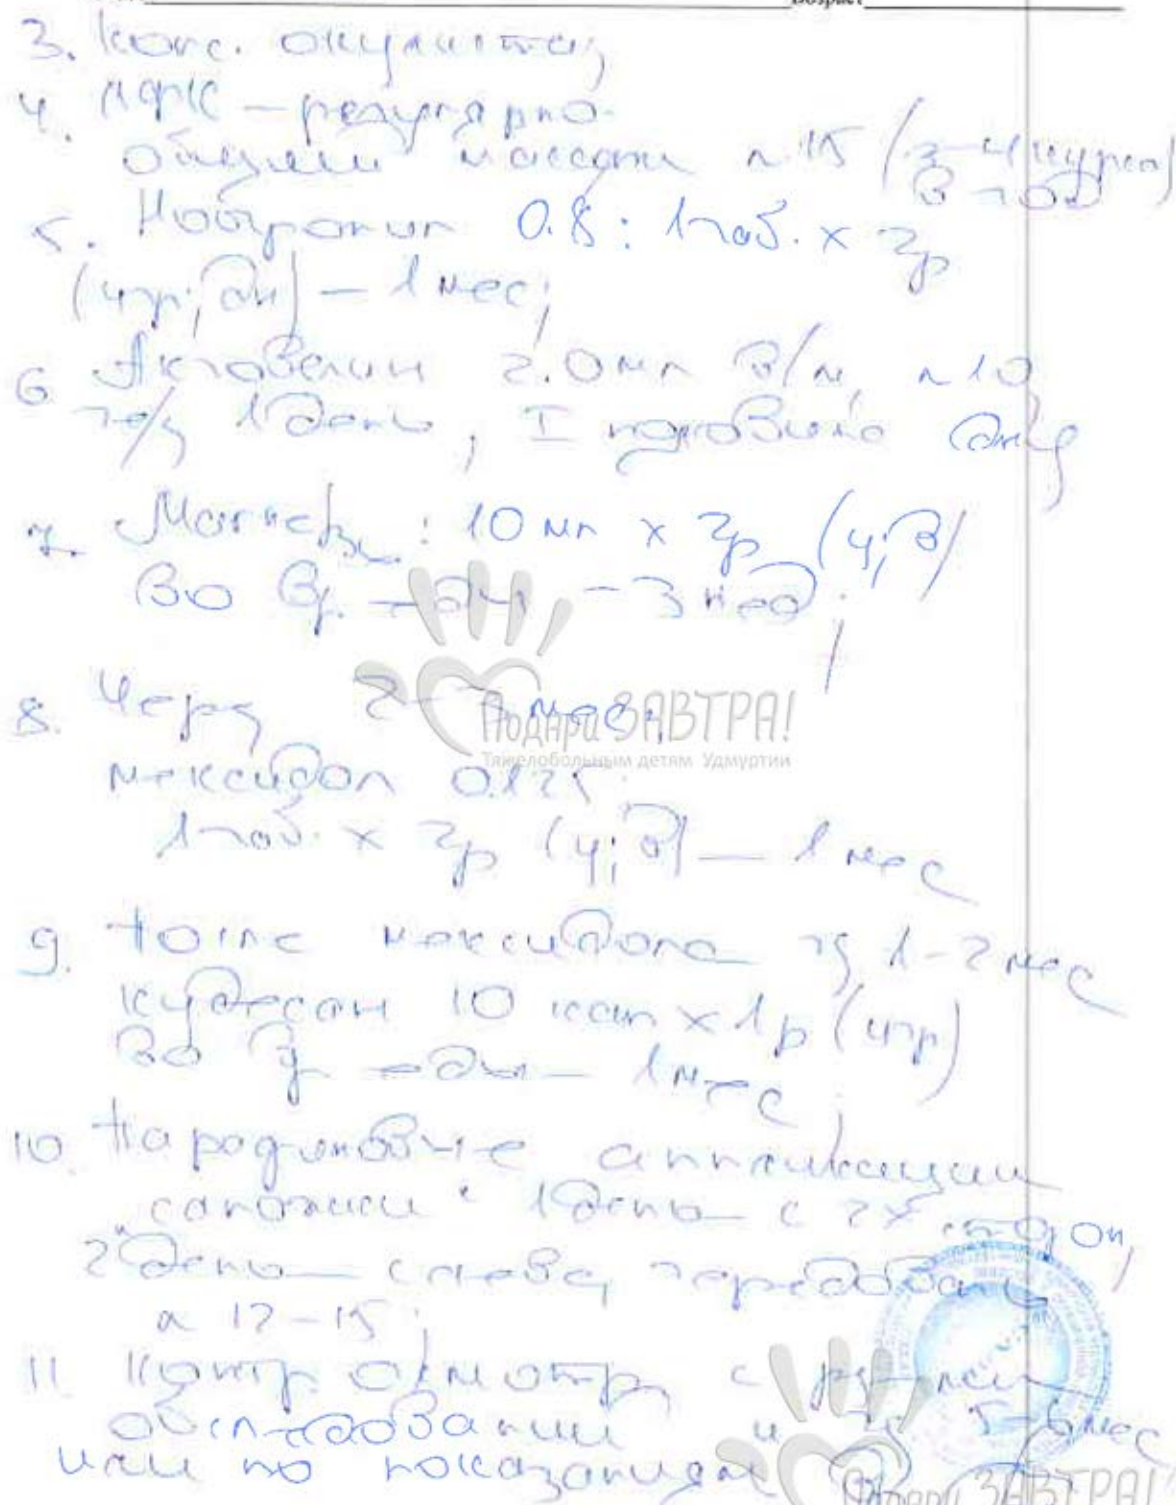 Возраст
3. Конс. окулиста;
4. ЛФК – регулярно.
общий массаж n 15 (3-4 курса
в год)
5. Ноотропил 0.8: 1 таб. x 2р
(утр; дн) – 1 мес;
6 Актовегин 2.0 мл в/м, n 10,
ч/з 1 день, I половина дня
7. : 10 мл x 2р (у; в)
во вр. еды – 3 нед.;
8. Через 2-3 мес.
мексидол 0.125:
1 таб. x 2р (у; в) – 1 мес
9. После мексидола чз 1-2 мес
кудесан 10 кап x 1р (утр)
во вр еды – 1 мес;
10. Парафиновые аппликации
"сапожки" 1 день с 2х сторон,
2 день – слева, чередовать
n 12-15;
11 Контр. осмотр с рез-ми
обследований 5-6 мес
или по показаниям
Подари ЗАВТРА!
Тяжелобольным детям Удмуртии
Подари ЗАВТРА!